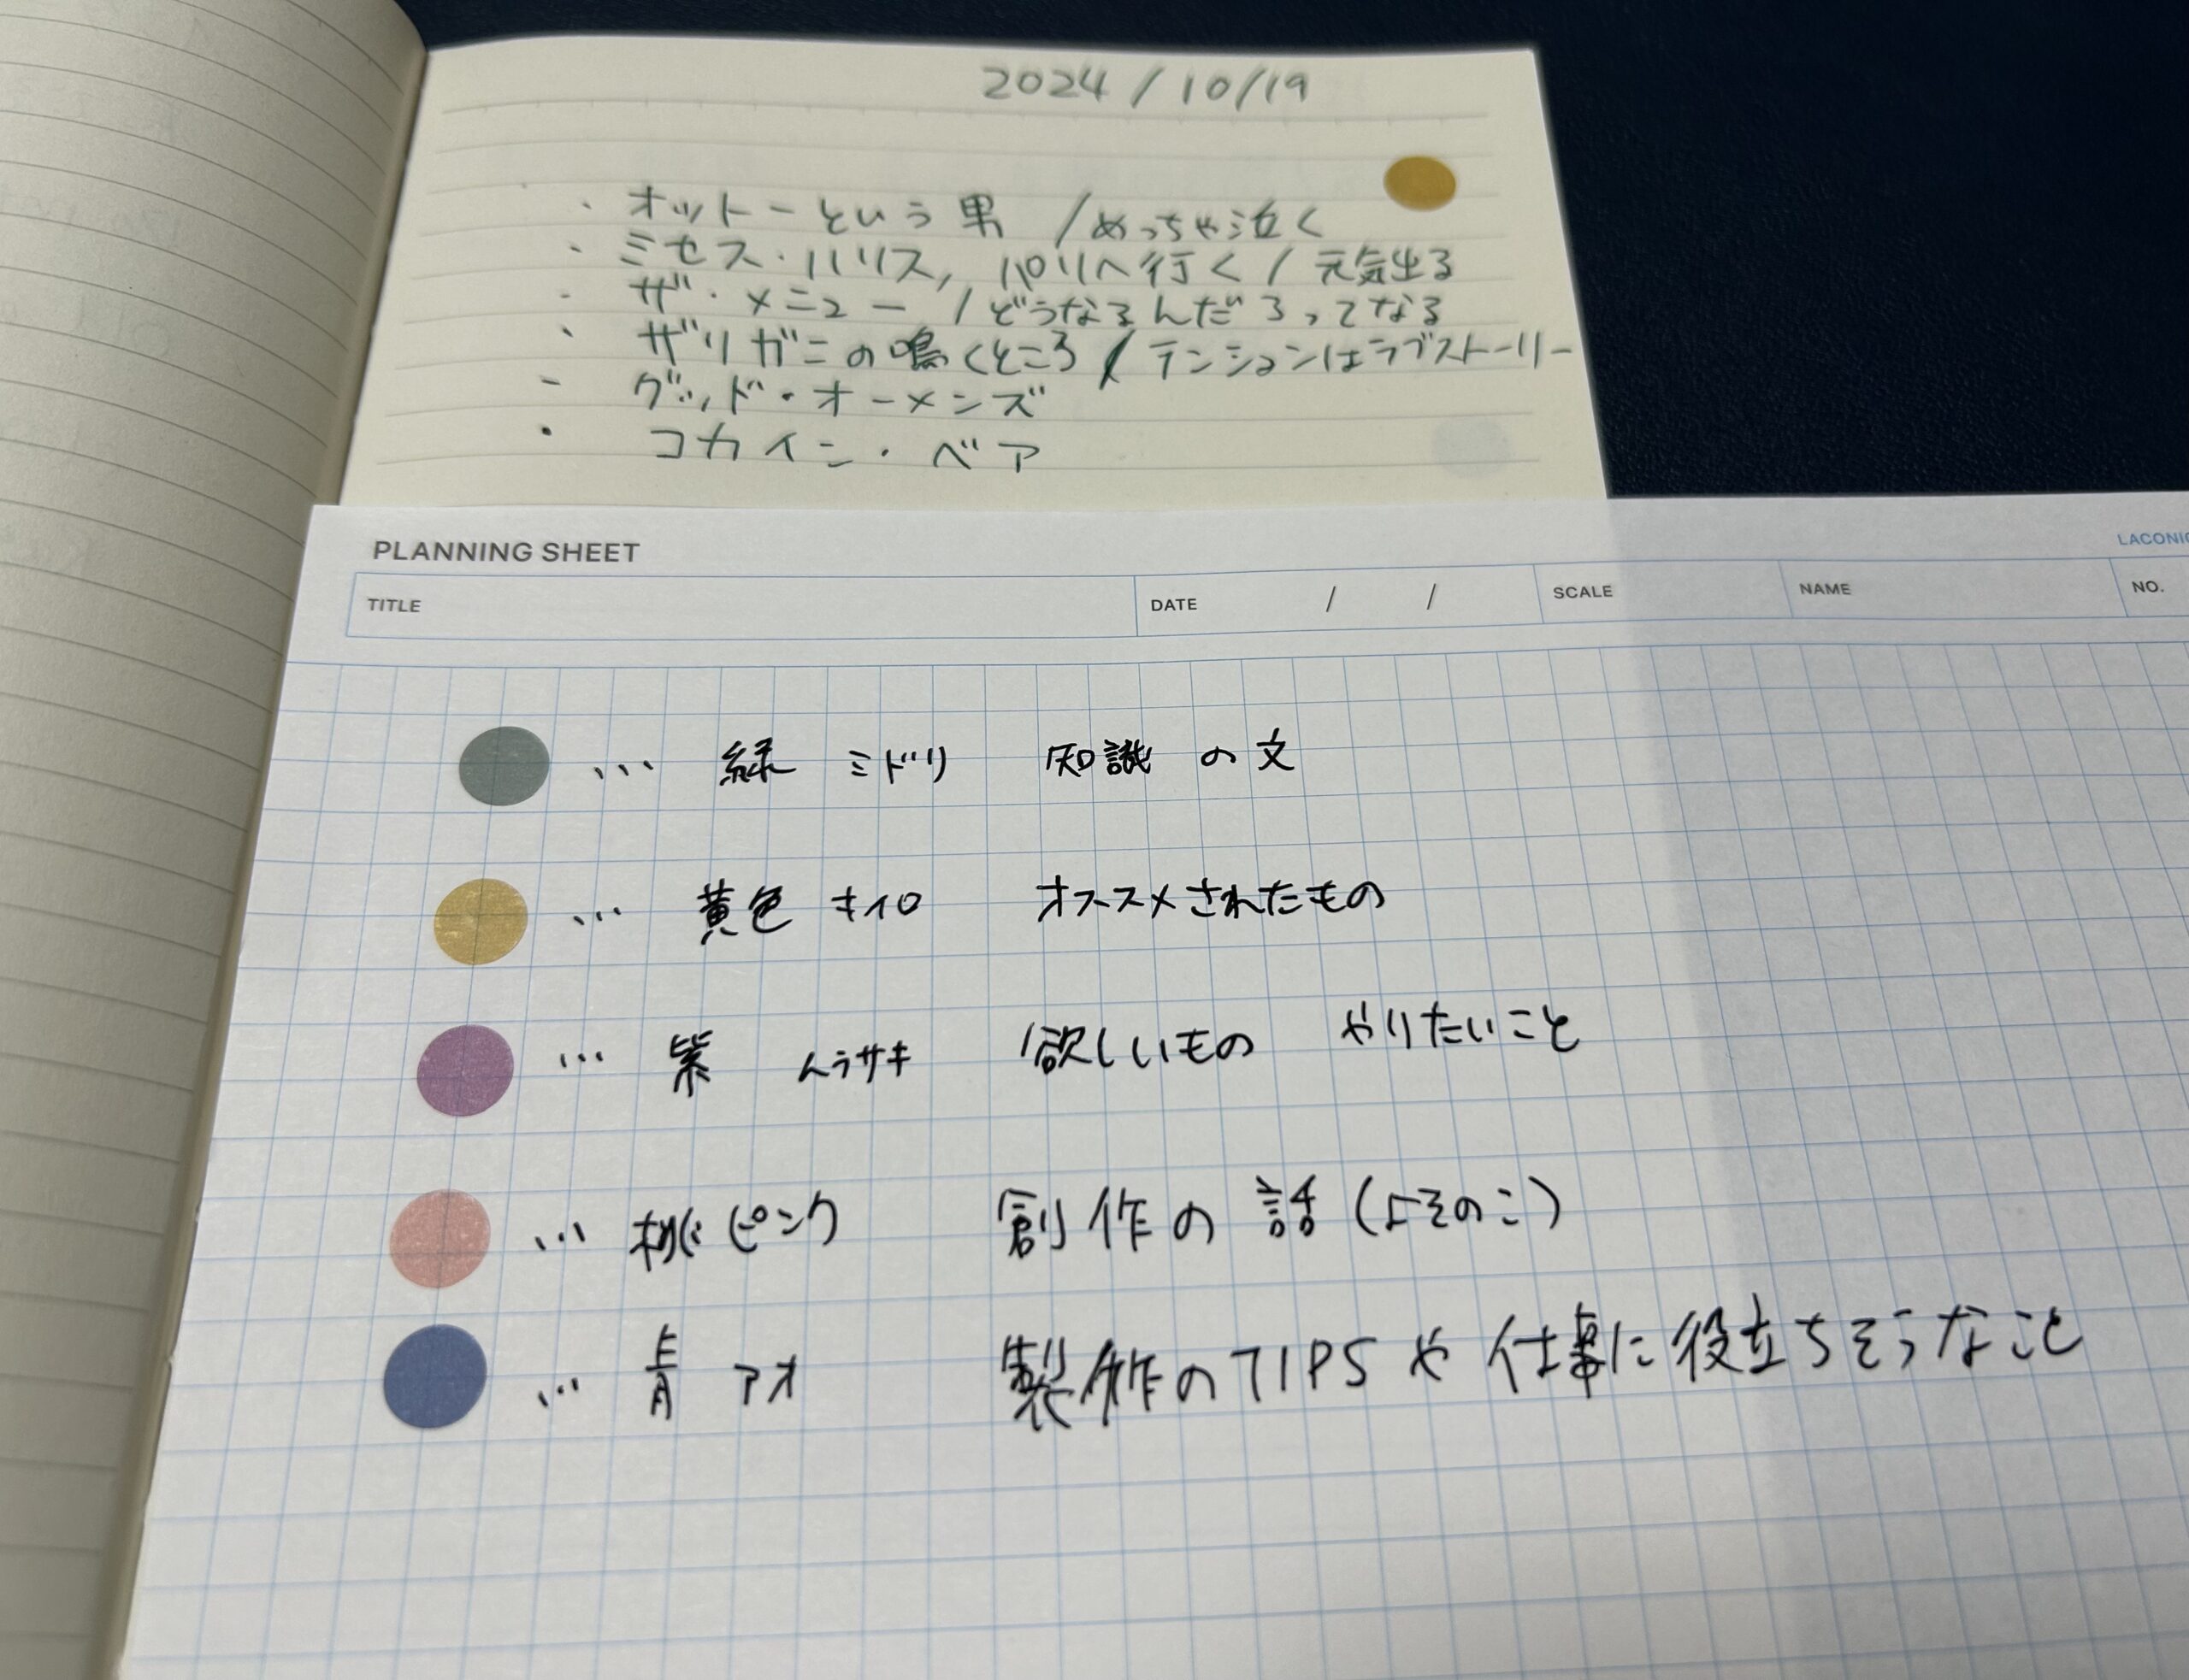 2024/10/19
・オットーという男 /めっちゃ泣く
・ミセス・ハリス, パリへ行く / 元気出る
・ザ・メニュー / どうなるんだろってなる
・ザリガニの鳴くところ / テンションはラブストーリー
・グッド・オーメンズ
・コカイン・ベア
PLANNING SHEET
LACONIC
TITLE DATE / / SCALE NAME NO.
… 緑 ミドリ 知識の文
… 黄色 キイロ オススメされたもの
… 紫 ムラサキ 欲しいもの やりたいこと
… 桃 ピンク 創作の話(よそのこ)
… 青 アオ 製作のTIPSや仕事に役立ちそうなこと